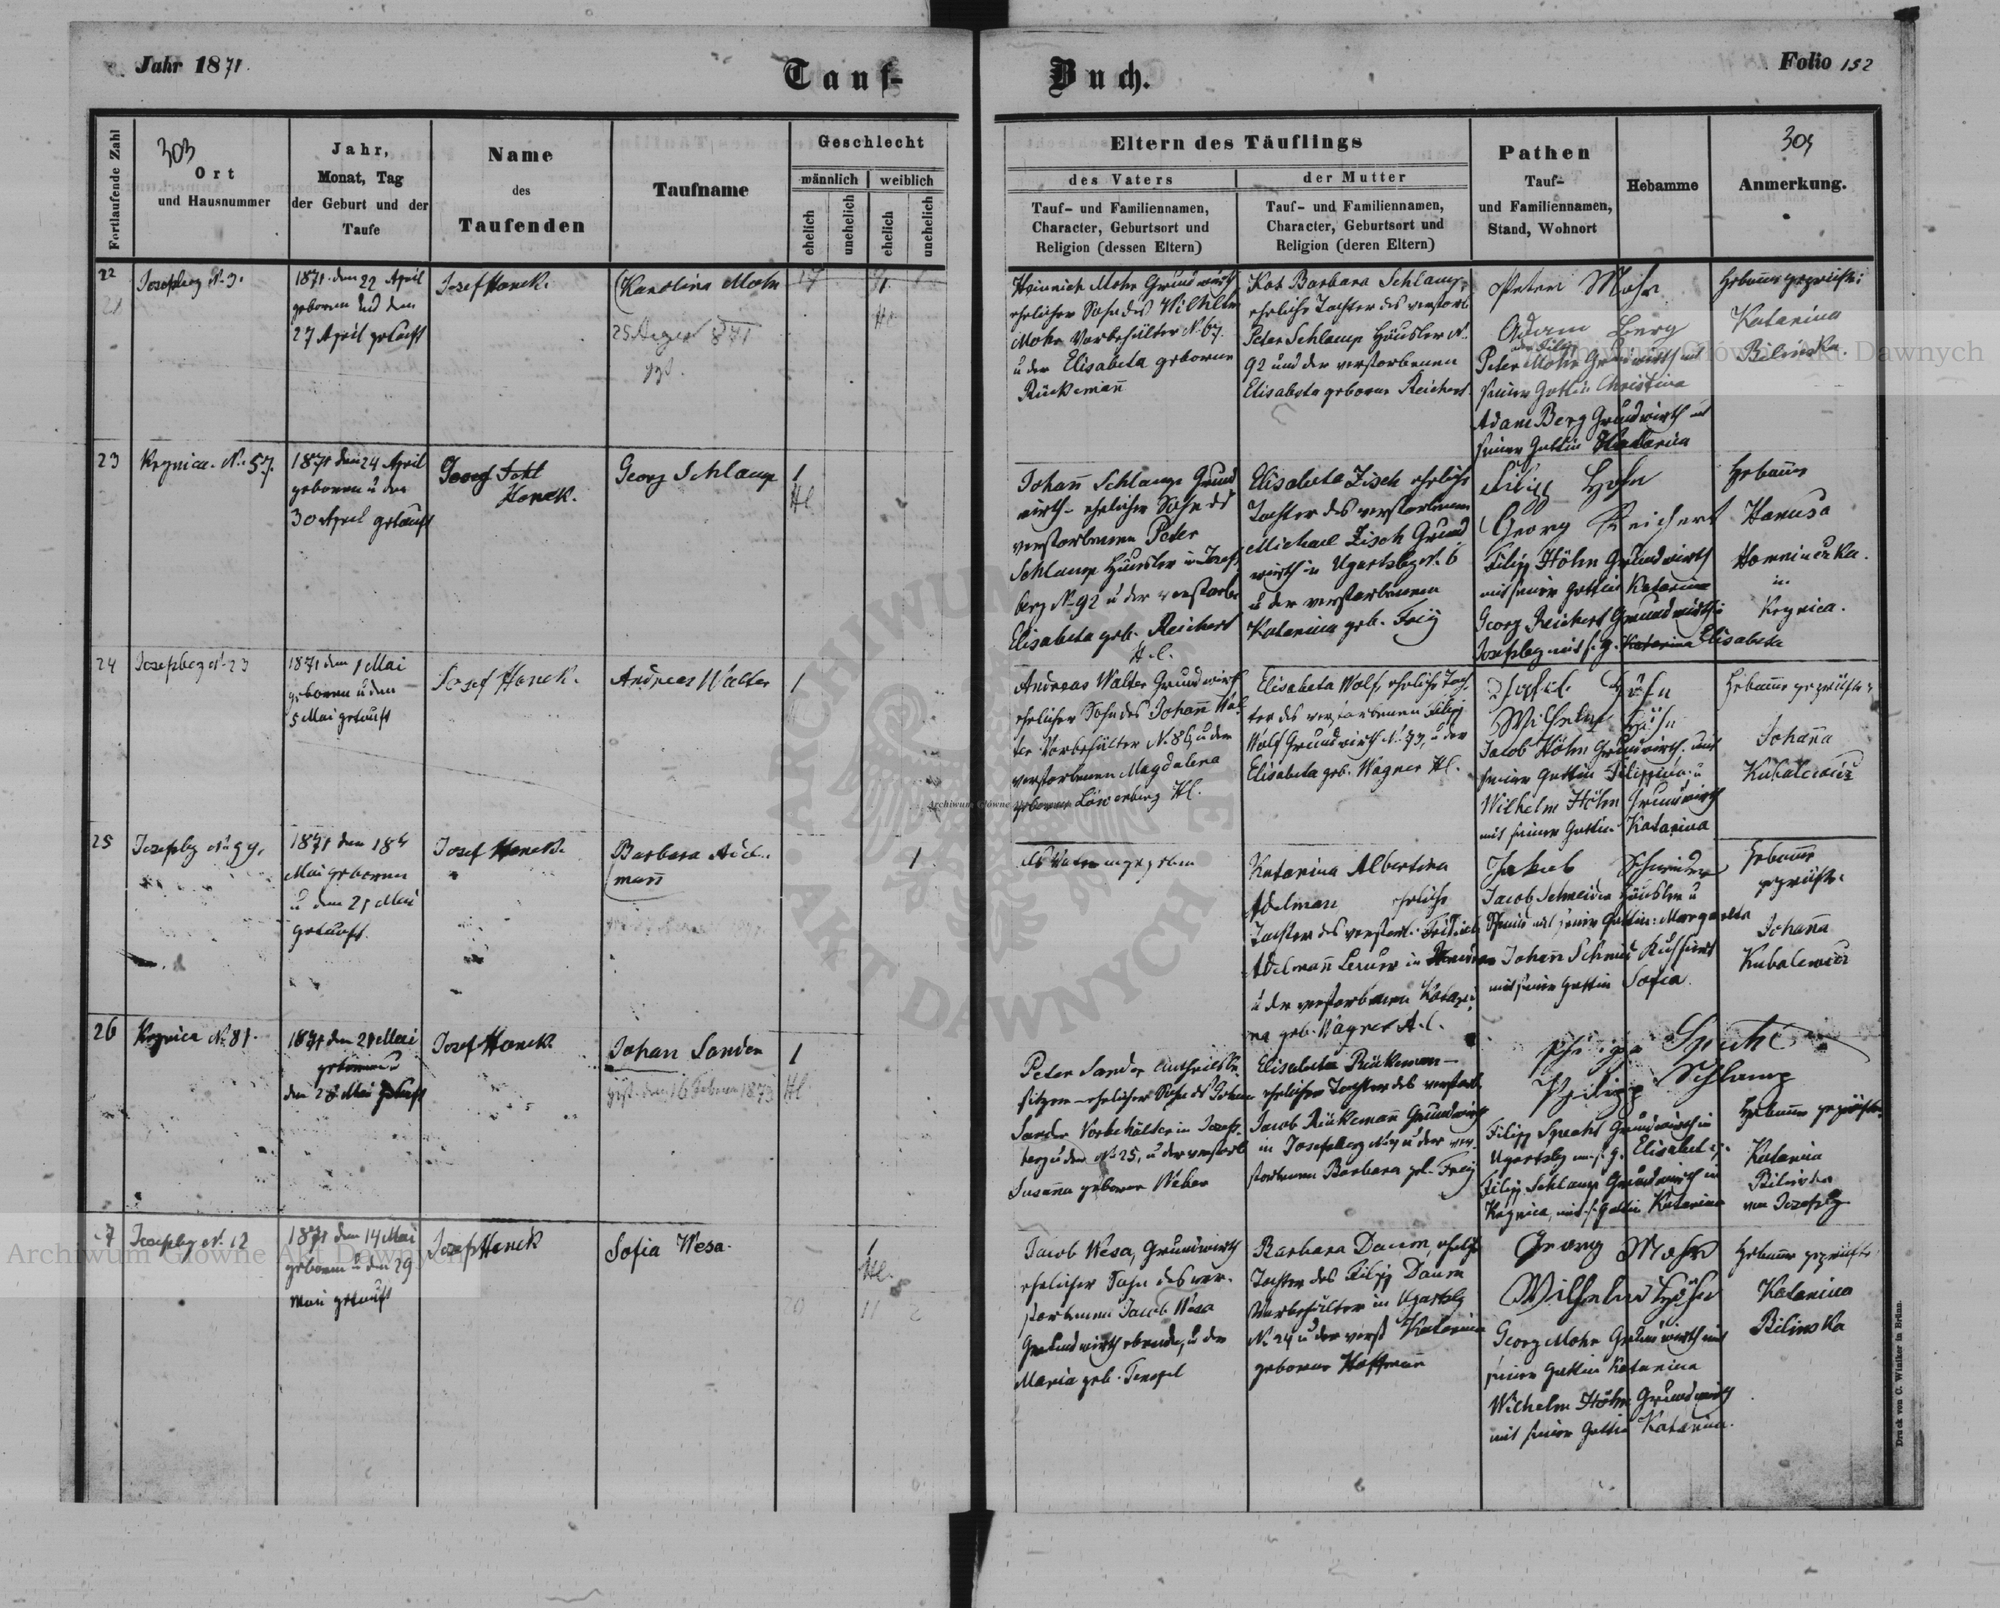 Jahr 1871.
Tauf-
Buch.
Folio 152
Fortlaufende Zahl
303
Ort
und Hausnummer
Jahr,
Monat, Tag
der Geburt und der
Taufe
Name
des
Taufenden
Taufname
Geschlecht
männlich
weiblich
ehelich
unehelich
ehelich
unehelich
Eltern des Täuflings
des Vaters
Tauf- und Familiennamen,
Character, Geburtsort und
Religion (dessen Eltern)
der Mutter
Tauf- und Familiennamen,
Character, Geburtsort und
Religion (deren Eltern)
Pathen
Tauf-
und Familiennamen,
Stand, Wohnort
Hebamme
304
Anmerkung.
22
Josefsberg N. 3.
1871 den 22 April
geboren und den
27 April getauft
Josef Hanek.
Karolina Mohr
Heinrich Mohr Grundwirth
ehelicher Sohn des Wilhelm
Mohr Vorbehälter N. 67
u der Elisabeta geborene
Rückemann
Kat Barbara Schlamp,
eheliche Tochter des verstorb.
Peter Schlamp Häusler N.
92 und der verstorbenen
Elisabeta geborene Reichert
Peter Mohr
Adam Berg
Peter Mohr Grundwirth mit
seiner Gattin Christina
Adam Berg Grundwirth mit
seiner Gattin Katarina
Hebamme geprüfte:
Katarina
Bilinska.
23
Krynica. N. 57.
1871 den 24 April
geboren u den
30 April getauft
Georg
Hanek.
Georg Schlamp
1
Hl
Johann Schlamp Grund
wirth - ehelicher Sohn des
verstorbenen Peter
Schlamp Häusler in Josefs
berg N. 92 u der verstorbe
Elisabeta geb. Reichert
Hl.
Elisabeta Zisch eheliche
Tochter des verstorbenen
Michael Zisch Grund
wirth in Ugartsberg N. 6
u der verstorbenen
Katarina geb. Frey
Filipp Höhn
Georg Reichert
Filipp Höhn Grundwirth
mit seiner Gattin Katarina
Georg Reichert Grundwirth in
Josefsberg mit s. g. Katarina Elisabeta
Hebamme
Hanusa
in
Krynica.
24
Josefsberg N. 23
1871 den 1 Mai
geboren u den
5 Mai getauft
Josef Hanek.
Andreas Walter
1
Andreas Walter Grundwirth
ehelicher Sohn des Johann Wal
ter Vorbehälter N. 86 u der
verstorbenen Magdalena
geborene Löwenberg Hl.
Elisabeta Wolf, eheliche Toch
ter des verstorbenen Filipp
Wolf Grundwirth N. 73, u der
Elisabeta geb. Wagner Hl.
Wilhelm Höhn
Jacob Höhn Grundwirth mit
seiner Gattin Filippina u
Wilhelm Höhn Grundwirth
mit seiner Gattin Katarina
Hebamme geprüfte
Johanna
Kubalewicz
25
Josefsbg N. 99.
1871 den 18t
Mai geboren
u den 21 Mai
getauft.
Josef Hanek.
Barbara Adel.
mann
1
Katarina Albertina
Adelman eheliche
Tochter des verstorb. Fridrich
Adelmann Lehrer in
u der verstorbenen Katari
na geb. Wagner A. C.
Jakob Schneider
Jacob Schneider Häusler u
Schmid mit seiner Gattin Margareta
Johann Schmid
mit seiner Gattin Sofia.
Hebamme
geprüfte
Johanna
Kubalewicz
26
Krynica N. 81.
1871 den 21 Mai
geboren u
den 28 Mai getauft
Josef Hanek
Johan Sander
gest. den 16 Februar 1873
1
Hl
Peter Sander Antheilsbe
sitzer - ehelicher Sohn des Johan
Sander Vorbehälter in Josefs
berg u den N. 25, u der verstorb
Susanna geborene Weber
Elisabeta Rükeman
eheliche Tochter des verstorb.
Jacob Rükemann Grundwirth
in Josefsberg N. 4 u der ver
storbenen Barbara geb. Frey
Philipp Schlamp
Filipp Specht Grundwirth in
Ugartsbg m. s. g. Elisabet u
Filipp Schlamp Grundwirth in
Krynica, mit s. Gattin Katarina
Hebamme geprüfte
Katarina
Bilinska
von Josefsbg
27
Josefsberg N. 12
1871 den 14 Mai
geboren u den 29
Mai getauft
Josef Hanek
Sofia Wesa.
1
Hl.
Jacob Wesa, Grundwirth
ehelicher Sohn des ver-
storbenen Jacob Wesa
Grundwirth ebenda, u der
Maria geb. Tempel
Barbara Daum, eheliche
Tochter des Filipp Daum
Vorbehälter in Ugartsbg
N. 24 u der verst Katarina
geborene Hoffmann
Georg Mohr
Wilhelm Höhn
Georg Mohr Grundwirth mit
seiner Gattin Katarina
Wilhelm Höhn Grundwirth
mit seiner Gattin Katarina.
Hebamme geprüfte
Katarina
Bilinska
Druck von C. Winiker in Brünn.
Archiwum Główne Akt Dawnych
ARCHIWUM GŁÓWNE AKT DAWNYCH
Archiwum Główne Akt Dawnych